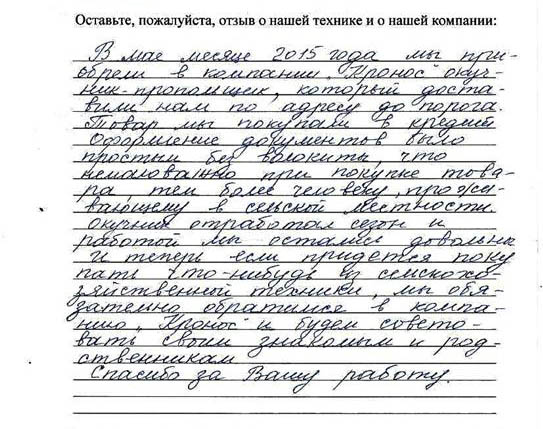 Оставьте, пожалуйста, отзыв о нашей технике и о нашей компании:
В мае месяце 2015 года мы при-
обрели в компании „Кронос" окуч-
ник-пропольщик, который доста-
вили нам по адресу до порога.
Товар мы покупали в кредит
Оформление документов было
простым без волокиты, что
немаловажно при покупке това-
ра, тем более человеку, прожи-
вающему в сельской местности.
окучник отработал сезон и
работой мы остались довольны
и теперь если придется поку
пать что-нибудь из сельскохо-
зяйственной техники, мы обя-
зательно обратимся в компа-
нию „Кронос" и будем совето-
вать своим знакомым и род-
ственникам
Спасибо за Вашу работу.